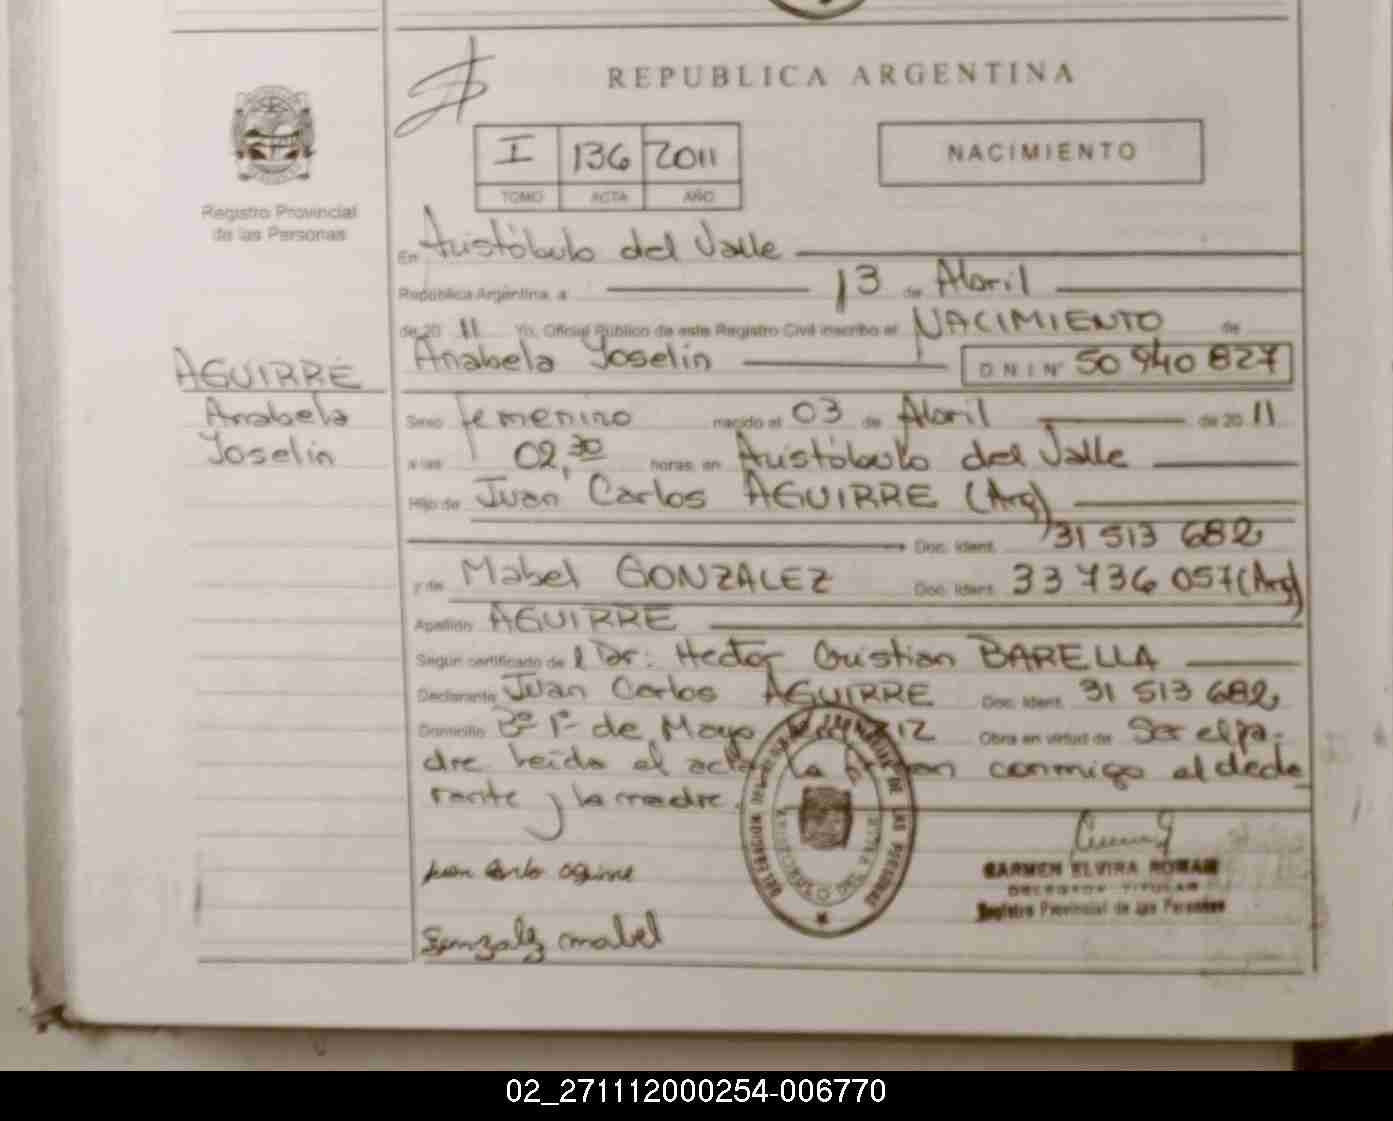 REPUBLICA ARGENTINA
I 136 2011
TOMO ACTA AÑO
NACIMIENTO
Registro Provincial
de las Personas
En Aristóbulo del Valle
República Argentina, a 13 de Abril
de 20 11 Yo, Oficial Público de este Registro Civil inscribo el NACIMIENTO de
Anabela Yoselin D.N.I. Nº 50 940 827
AGUIRRE
Anabela
Yoselin
Sexo femenino nacido el 03 de Abril de 20 11
a las 02,30 horas en Aristóbulo del Valle
Hijo de Juan Carlos AGUIRRE (Arg)
Doc. Ident. 31 513 682
y de Mabel GONZALEZ Doc. Ident. 33 736 057 (Arg)
Apellido AGUIRRE
Según certificado de l Dr: Hector Cristian BARELLA
Declarante Juan Carlos AGUIRRE Doc. Ident. 31 513 682
Domicilio Bº 1º de Mayo Obra en virtud de Ser el pa-
dre leída el acta la firman conmigo el decla
rante y la madre.
Juan Carlos Aguirre
CARMEN ELVIRA ROMAN
DELEGADA TITULAR
Registro Provincial de las Personas
Gonzalez mabel
02_271112000254-006770